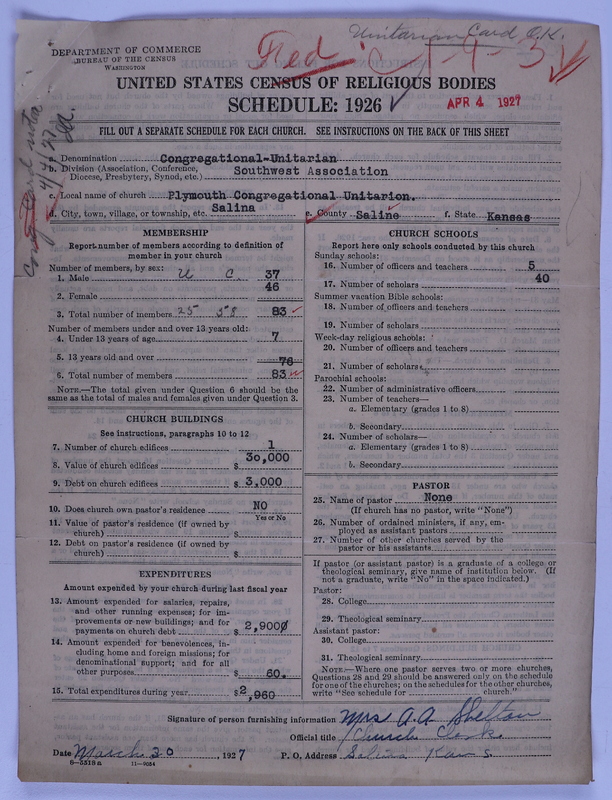 Unitarian Card O.K.
DEPARTMENT OF COMMERCE
BUREAU OF THE CENSUS
WASHINGTON
Fed. 1-9-3
UNITED STATES CENSUS OF RELIGIOUS BODIES
SCHEDULE: 1926
APR 4 1927
FILL OUT A SEPARATE SCHEDULE FOR EACH CHURCH. SEE INSTRUCTIONS ON THE BACK OF THIS SHEET
a. Denomination Congregational-Unitarian
b. Division (Association, Conference, Diocese, Presbytery, Synod, etc.) Southwest Association
c. Local name of church Plymouth Congregational Unitarion.
d. City, town, village, or township, etc. Salina e. County Saline f. State Kansas
Cong. Card
4/4/27
MEMBERSHIP
Report number of members according to definition of
member in your church
Number of members, by sex:
1. Male U C. 37
2. Female 46
3. Total number of members 25 58 83
Number of members under and over 13 years old:
4. Under 13 years of age 7
5. 13 years old and over 76
6. Total number of members 83
NOTE.—The total given under Question 6 should be the
same as the total of males and females given under Question 3.
CHURCH BUILDINGS
See instructions, paragraphs 10 to 12
7. Number of church edifices 1
8. Value of church edifices $ 30,000
9. Debt on church edifices $ 3,000
10. Does church own pastor's residence NO
Yes or No
11. Value of pastor's residence (if owned by
church) $
12. Debt on pastor's residence (if owned by
church) $
EXPENDITURES
Amount expended by your church during last fiscal year
13. Amount expended for salaries, repairs,
and other running expenses; for im-
provements or new buildings; and for
payments on church debt $ 2,9000
14. Amount expended for benevolences, in-
cluding home and foreign missions; for
denominational support; and for all
other purposes $ 60.
15. Total expenditures during year $2,960
CHURCH SCHOOLS
Report here only schools conducted by this church
Sunday schools:
16. Number of officers and teachers 5
17. Number of scholars 40
Summer vacation Bible schools:
18. Number of officers and teachers
19. Number of scholars
Week-day religious schools:
20. Number of officers and teachers
21. Number of scholars
Parochial schools:
22. Number of administrative officers
23. Number of teachers—
a. Elementary (grades 1 to 8)
b. Secondary
24. Number of scholars—
a. Elementary (grades 1 to 8)
b. Secondary
PASTOR
25. Name of pastor None
(If church has no pastor, write "None")
26. Number of ordained ministers, if any, em-
ployed as assistant pastors
27. Number of other churches served by the
pastor or his assistants
If pastor (or assistant pastor) is a graduate of a college or
theological seminary, give name of institution below. (If
not a graduate, write "No" in the space indicated.)
Pastor:
28. College
29. Theological seminary
Assistant pastor:
30. College
31. Theological seminary
NOTE.—Where one pastor serves two or more churches,
Questions 28 and 29 should be answered only on the schedule
for one of the churches; on the schedules for the other churches,
write "See schedule for church."
Signature of person furnishing information Mrs A.A. Shelton
Official title Church Clerk
Date March 30, 1927 P. O. Address Salina Kans.
8-5518a 11-9034